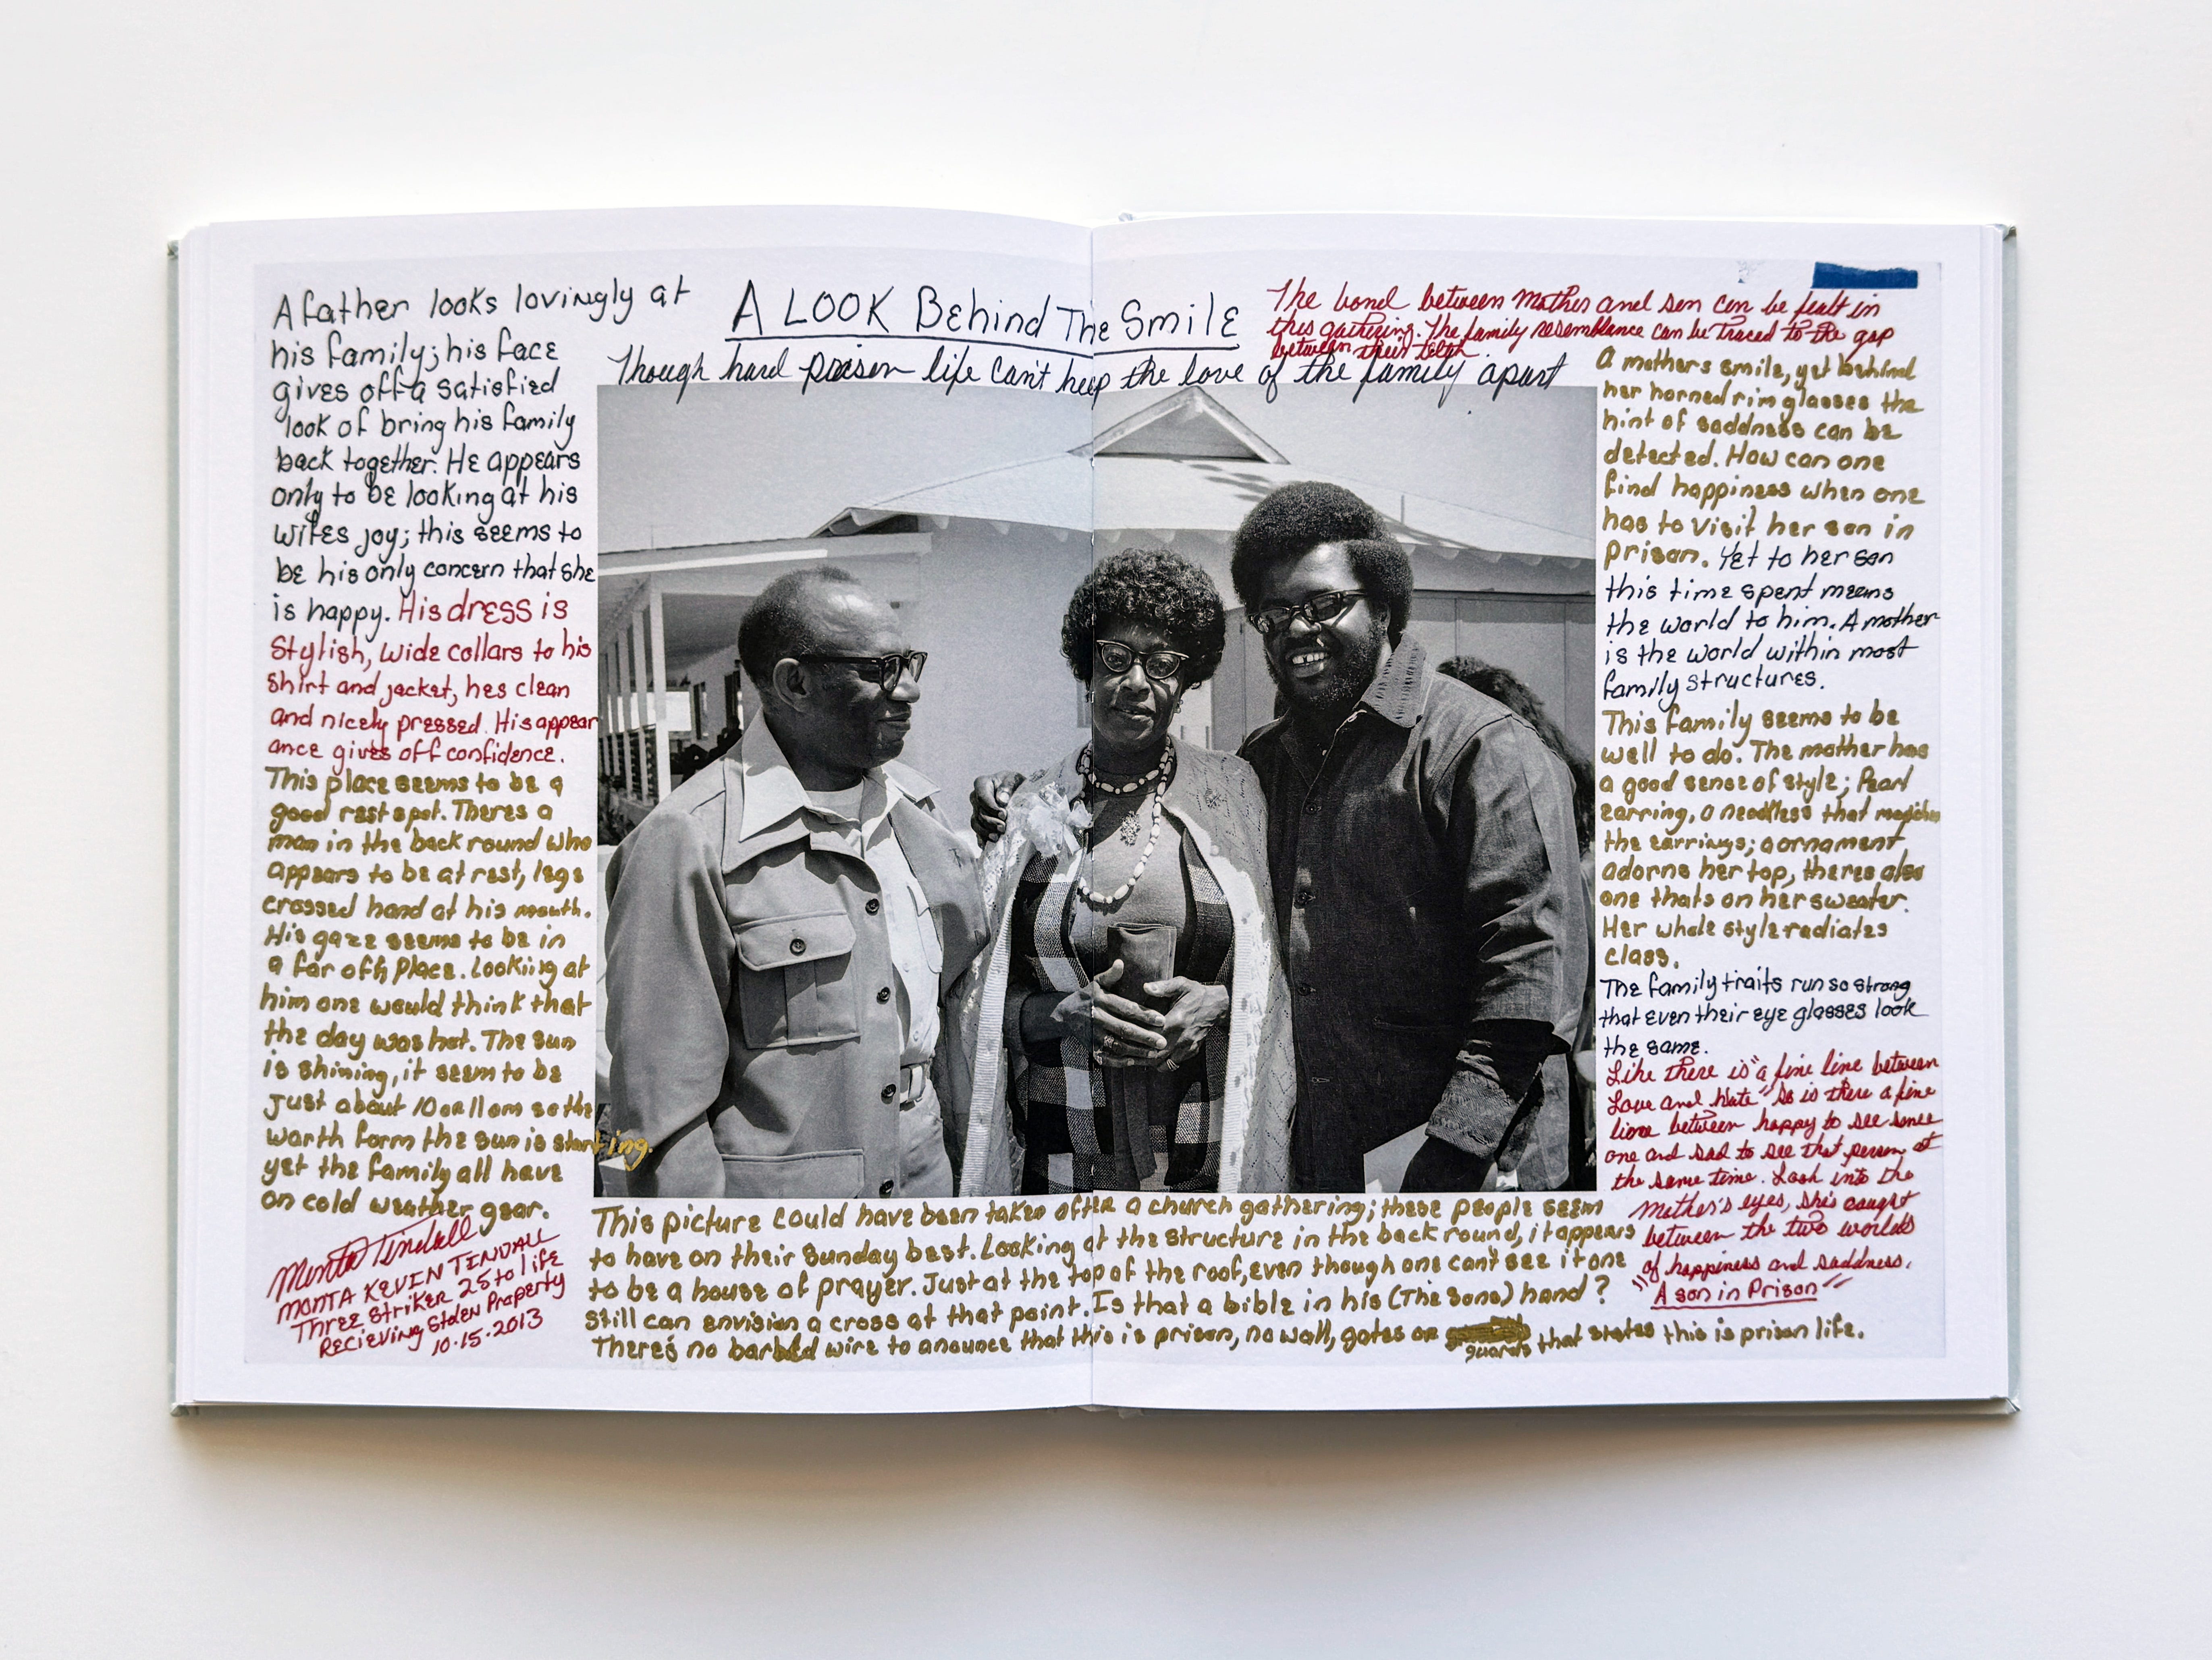 A LOOK Behind The Smile
Though hard prison life can't keep the love of the family apart
A father looks lovingly at
his family; his face
gives off a satisfied
look of bring his family
back together. He appears
only to be looking at his
wifes joy; this seems to
be his only concern that she
is happy. His dress is
Stylish, wide collars to his
shirt and jacket, hes clean
and nicely pressed. His appear
ance gives off confidence.
This place seems to be a
good rest spot. Theres a
man in the back round who
appears to be at rest, legs
crossed hand at his mouth.
His gaze seems to be in
a far off place. Lookiing at
him one would think that
the day was hot. The sun
is shining, it seem to be
Just about 10 or 11 am so the
warth form the sun is starting.
yet the family all have
on cold weather gear.
Monta Tindall
MONTA KEVIN TINDALL
Three Striker 25 to life
Recieving Stolen Property
10.15.2013
The bond between Mother and son can be fealt in
this gathering. The family resemblance can be traced to the gap
between their teeth.
A mothers smile, yet behind
her horned rim glasses the
hint of saddness can be
detected. How can one
find happiness when one
has to visit her son in
prison. Yet to her son
this time spent means
the world to him. A mother
is the world within most
family structures.
This family seems to be
well to do. The mother has
a good sense of style; Pearl
earring, a neckless that matches
the earrings; a ornament
adorns her top, theres also
one thats on her sweater.
Her whole style radiates
class.
The family traits run so strong
that even their eye glasses look
the same.
Like there is "a fine line between
Love and Hate" so is there a fine
line between happy to see some
one and sad to see that person at
the same time. Look into the
Mother's eyes, she's caught
between the two worlds
of happiness and saddness.
"A son in Prison"
This picture could have been taken after a church gathering; these people seem
to have on their Sunday best. Looking at the structure in the back round, it appears
to be a house of prayer. Just at the top of the roof, even though one cant see it one
still can envision a cross at that point. Is that a bible in his (The Sons) hand?
There's no barbed wire to anounce that this is prison, no wall, gates or guards that states this is prison life.